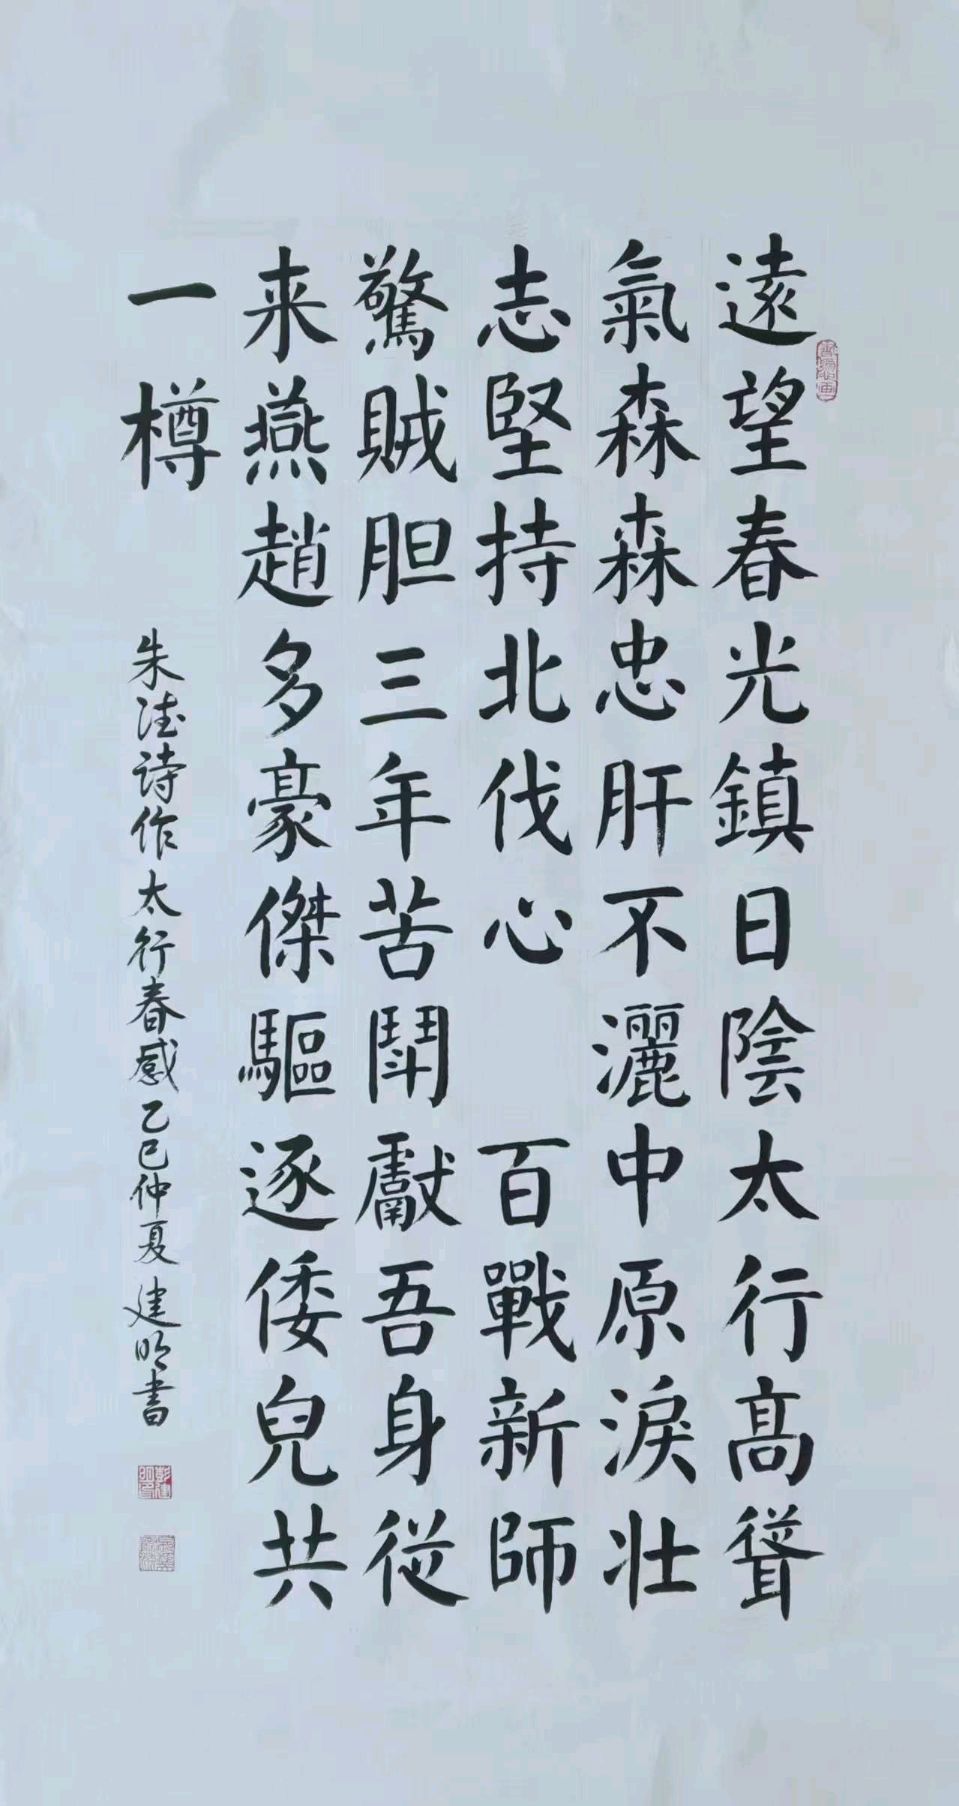 遠望春光鎮日陰太行髙聳
氣森森忠肝不灑中原淚壯
志堅持北伐心 百戰新師
驚賊胆三年苦鬭獻吾身従
来燕趙多豪傑驅逐倭兒共
一樽
朱德詩作太行春感乙巳仲夏建明書